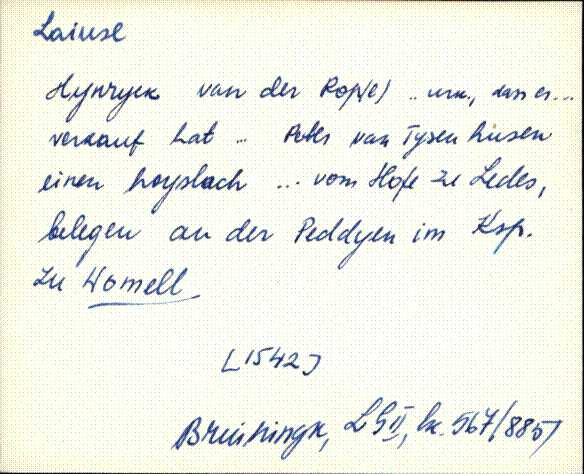 Laiuse
Hynryck van der Rop(e) .. urk., dass er ...
verkauf hat .. Peter van Tysenhusen
einen hoyslach ... vom Hofe zu Ledes,
belegen an der Peddyen im Ksp.
zu Womell
[1542]
Bruiningk, LGU II, Nr. 567 (885)